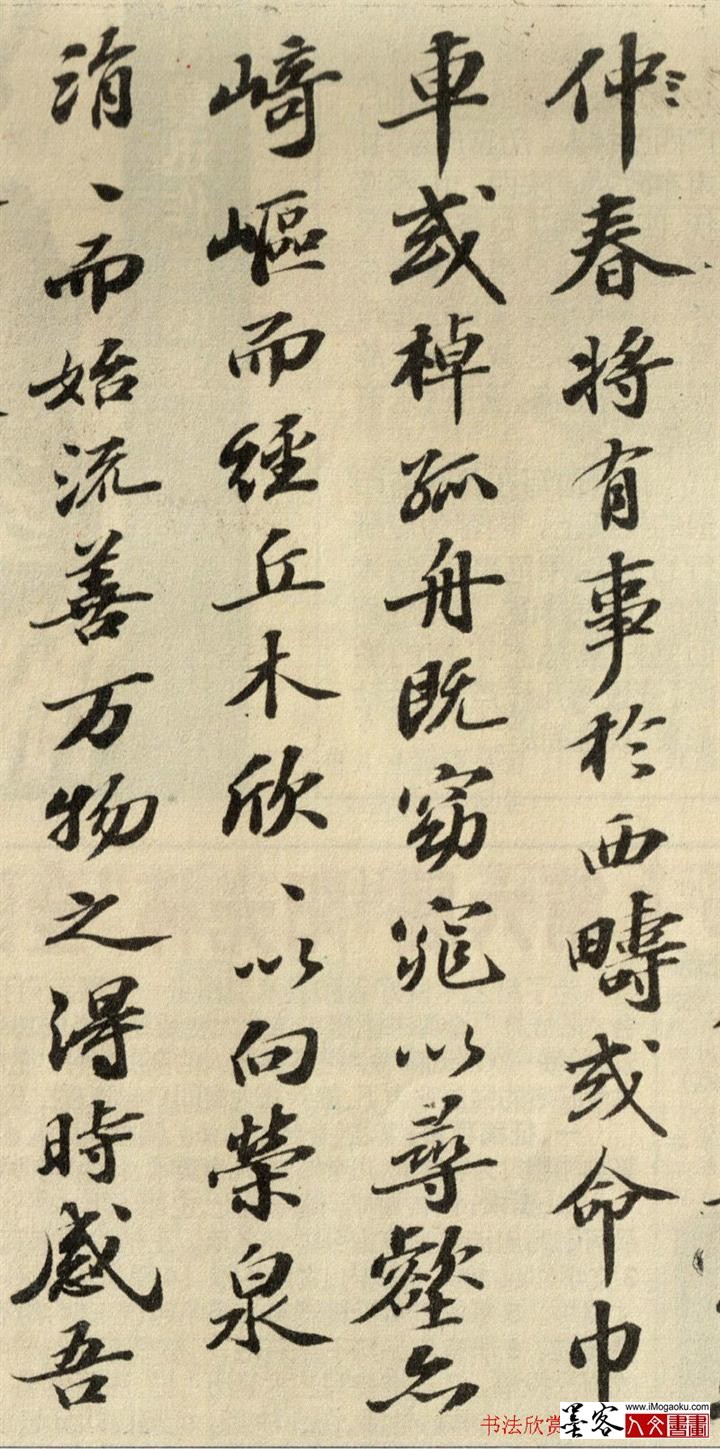 仲春将有事於西疇或命巾
車或棹孤舟既窈窕以尋壑亦
崎嶇而經丘木欣、以向榮泉
涓、而始流善万物之得時感吾
书法欣赏
墨客
www.iMogaoku.com
人文書畫